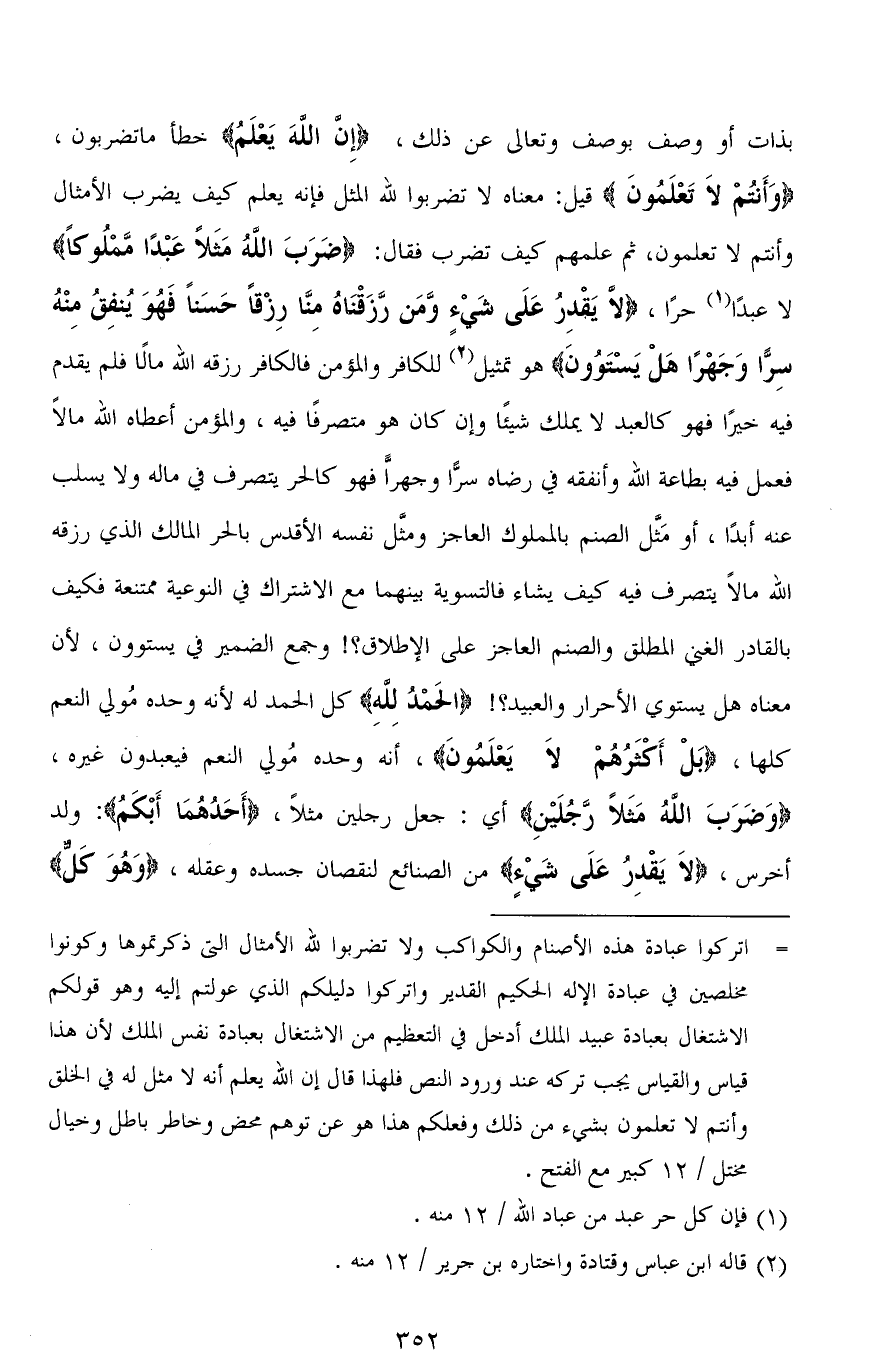 بذات أو وصف بوصف وتعالى عن ذلك ، ﴿إِنَّ اللَّهَ يَعْلَمُ﴾ خطأ ماتضربون ،
﴿وَأَنتُمْ لاَ تَعْلَمُونَ ﴾ قيل: معناه لا تضربوا لله المثل فإنه يعلم كيف يضرب الأمثال
وأنتم لا تعلمون، ثم علمهم كيف تضرب فقال: ﴿ضَرَبَ اللَّهُ مَثَلاً عَبْدًا مَّمْلُوكاً﴾
لا عبدًا(١) حرًا ، ﴿لاَّ يَقْدِرُ عَلَى شَيْءٍ وَّمَن رَّزَقْنَاهُ مِنَّا رِزْقاً حَسَناً فَهُوَ يُنفِقُ مِنْهُ
سِرًّا وَجَهْرًا هَلْ يَسْتَوُونَ﴾ هو تمثيل(٢) للكافر والمؤمن فالكافر رزقه الله مالًا فلم يقدم
فيه خيرًا فهو كالعبد لا يملك شيئًا وإن كان هو متصرفًا فيه ، والمؤمن أعطاه الله مالاً
فعمل فيه بطاعة الله وأنفقه في رضاه سرًّا وجهراً فهو كالحر يتصرف في ماله ولا يسلب
عنه أبدًا ، أو مَثَّل الصنم بالمملوك العاجز ومثَّل نفسه الأقدس بالحر المالك الذي رزقه
الله مالاً يتصرف فيه كيف يشاء فالتسوية بينهما مع الاشتراك في النوعية ممتنعة فكيف
بالقادر الغني المطلق والصنم العاجز على الإطلاق؟! وجمع الضمير في يستوون ، لأن
معناه هل يستوي الأحرار والعبيد؟! ﴿الحَمْدُ لِلَّهِ﴾ كل الحمد له لأنه وحده مُولي النعم
كلها ، ﴿بَلْ أَكْثَرُهُمْ لاَ يَعْلَمُونَ﴾ ، أنه وحده مُولي النعم فيعبدون غيره ،
﴿وَضَرَبَ اللَّهُ مَثَلاً رَّجُلَيْنِ﴾ أي : جعل رجلين مثلاً ، ﴿أَحَدُهُمَا أَبْكَمُ﴾: ولد
أخرس ، ﴿لاَ يَقْدِرُ عَلَى شَيْءٍ﴾ من الصنائع لنقصان جسده وعقله ، ﴿وَهُوَ كَلٌّ﴾
= اتركوا عبادة هذه الأصنام والكواكب ولا تضربوا لله الأمثال التى ذكرتموها وكونوا
مخلصين في عبادة الإله الحكيم القدير واتركوا دليلكم الذي عولتم إليه وهو قولكم
الاشتغال بعبادة عبيد الملك أدخل في التعظيم من الاشتغال بعبادة نفس الملك لأن هذا
قياس والقياس يجب تركه عند ورود النص فلهذا قال إن الله يعلم أنه لا مثل له في الخلق
وأنتم لا تعلمون بشيء من ذلك وفعلكم هذا هو عن توهم محض وخاطر باطل وخيال
مختل / ١٢ كبير مع الفتح .
(١) فإن كل حر عبد من عباد الله / ١٢ منه .
(٢) قاله ابن عباس وقتادة واختاره بن جرير / ١٢ منه .
٣٥٢